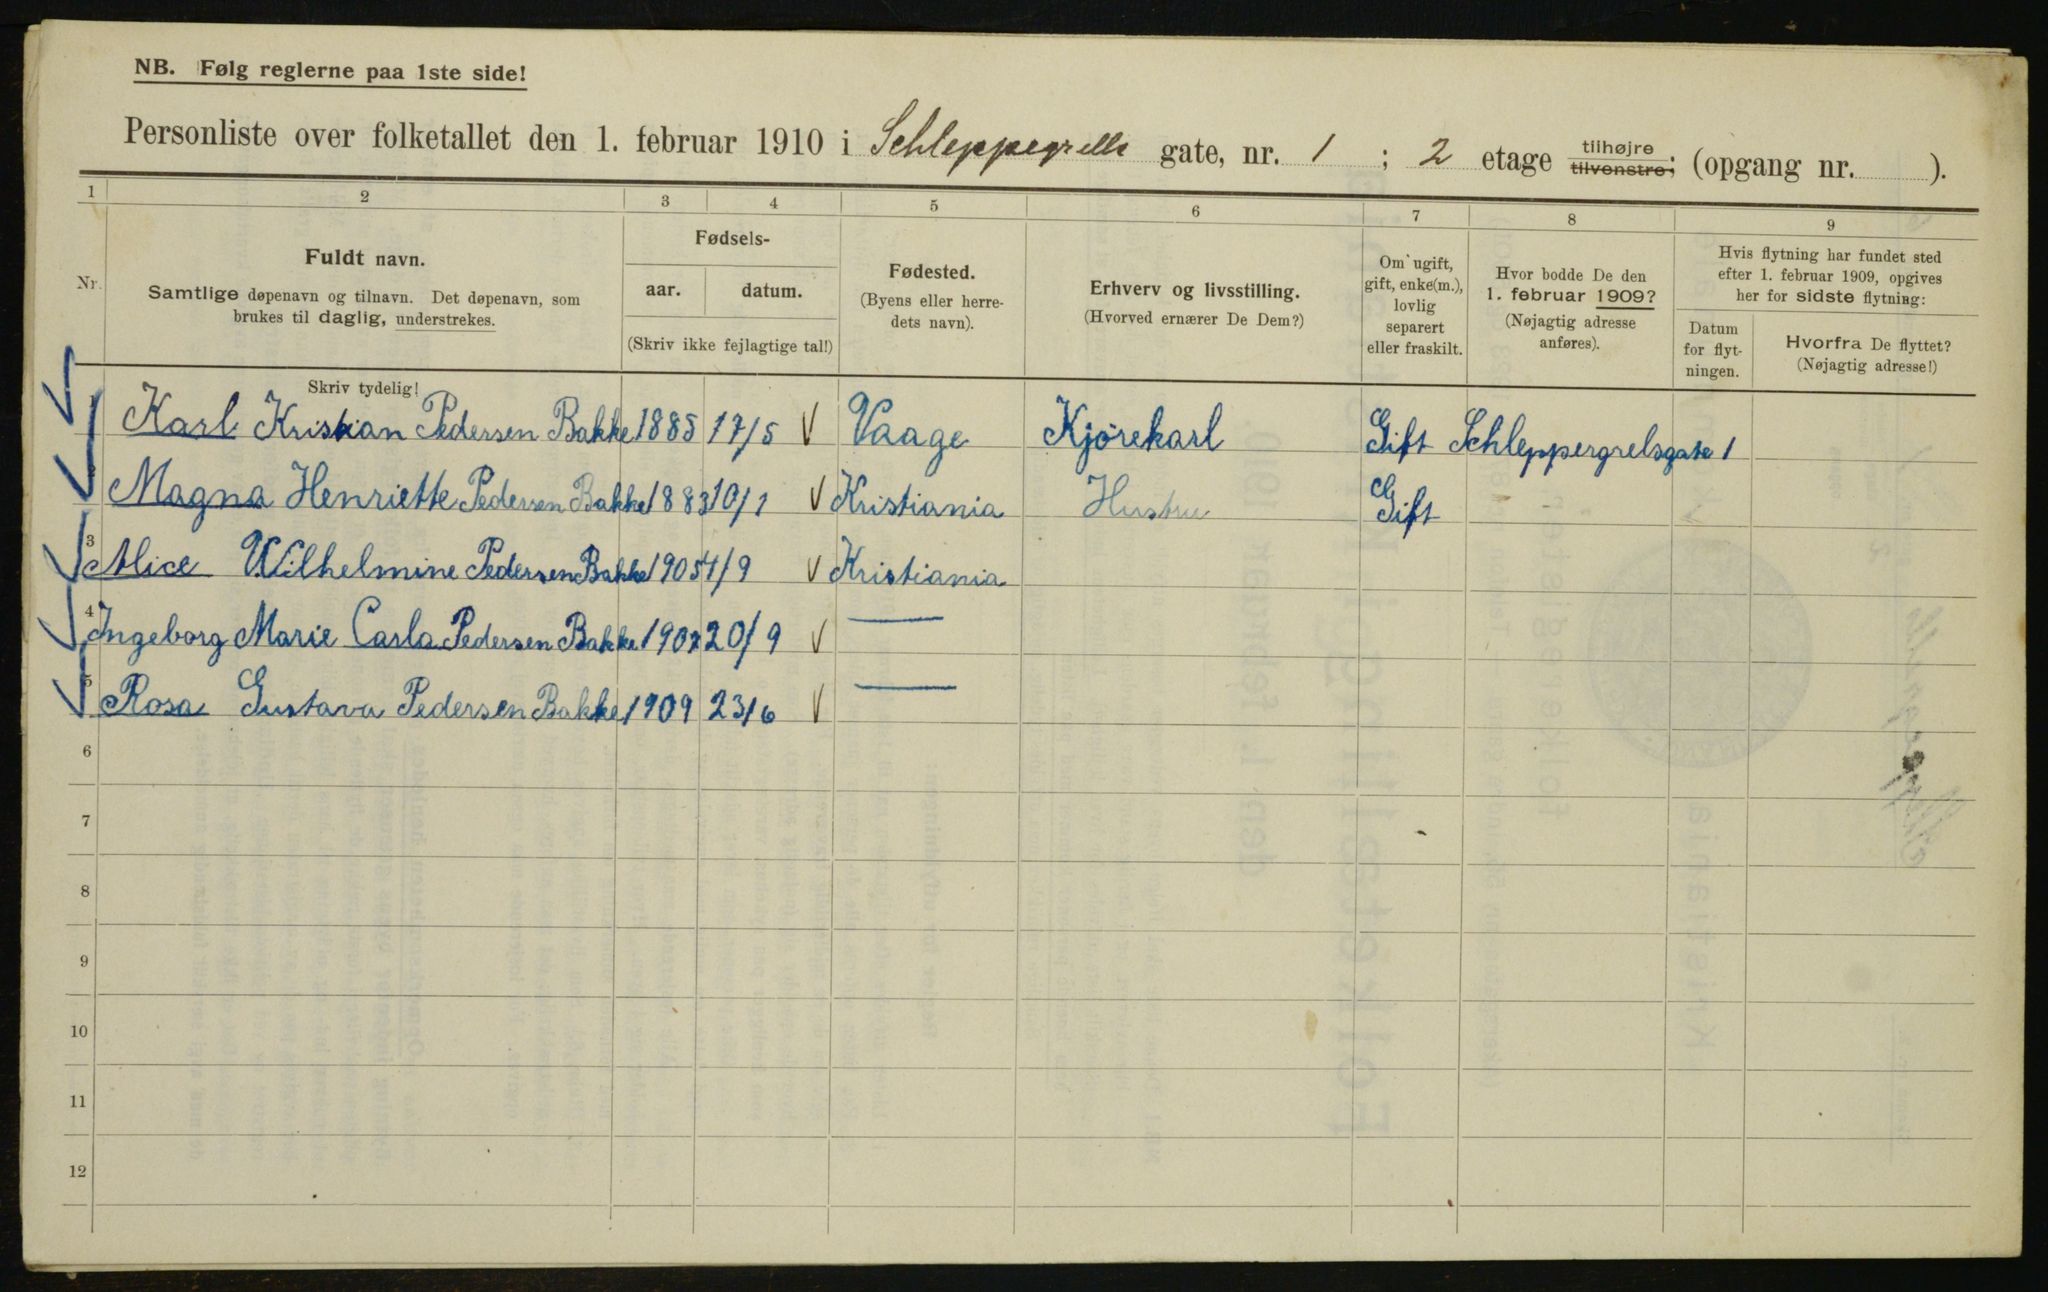 NB. Følg reglerne paa 1ste side!
Personliste over folketallet den 1. februar 1910 i Schleppegrells gate, nr. 1 ; 2 etage tilhøjre tilvenstre; (opgang nr. ).
1 2 3 4 5 6 7 8 9
Nr.
Fuldt navn.
Samtlige døpenavn og tilnavn. Det døpenavn, som
brukes til daglig, understrekes.
Skriv tydelig!
Fødsels-
aar. datum.
(Skriv ikke fejlagtige tal!)
Fødested.
(Byens eller herre-
dets navn).
Erhverv og livsstilling.
(Hvorved ernærer De Dem?)
Om ugift,
gift, enke(m.),
lovlig
separert
eller fraskilt.
Hvor bodde De den
1. februar 1909?
(Nøjagtig adresse
anføres).
Hvis flytning har fundet sted
efter 1. februar 1909, opgives
her for sidste flytning:
Datum
for flyt-
ningen.
Hvorfra De flyttet?
(Nøjagtig adresse!)
1 Karl Kristian Pedersen Bakke 1885 17/5 Vaage Kjørekarl Gift Schleppergrelsgate 1
Magna Henriette Pedersen Bakke 1883 10/1 Kristiania Hustru Gift
3 Alice Wilhelmine Pedersen Bakke 1905 4/9 Kristiania
4 Ingeborg Marie Carla Pedersen Bakke 20/9 —
5 Rosa Gustava Pedersen Bakke 1909 23/6 —
6
7
8
9
10
11
12